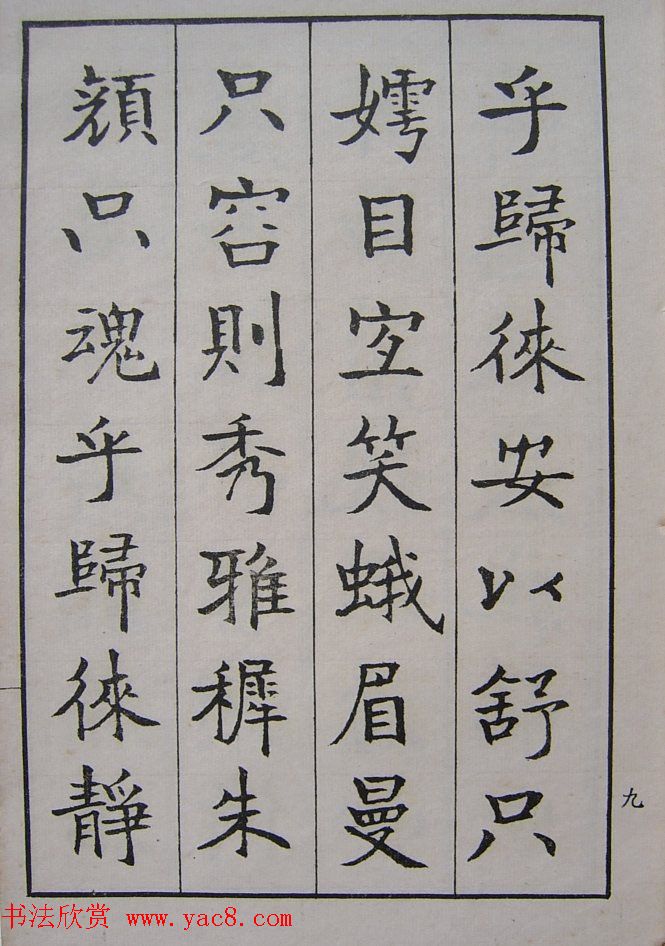 乎歸徠安以舒只
嫮目宜笑蛾眉曼
只容則秀雅穉朱
顏只魂乎歸徠靜
九
书法欣赏 www.yac8.com